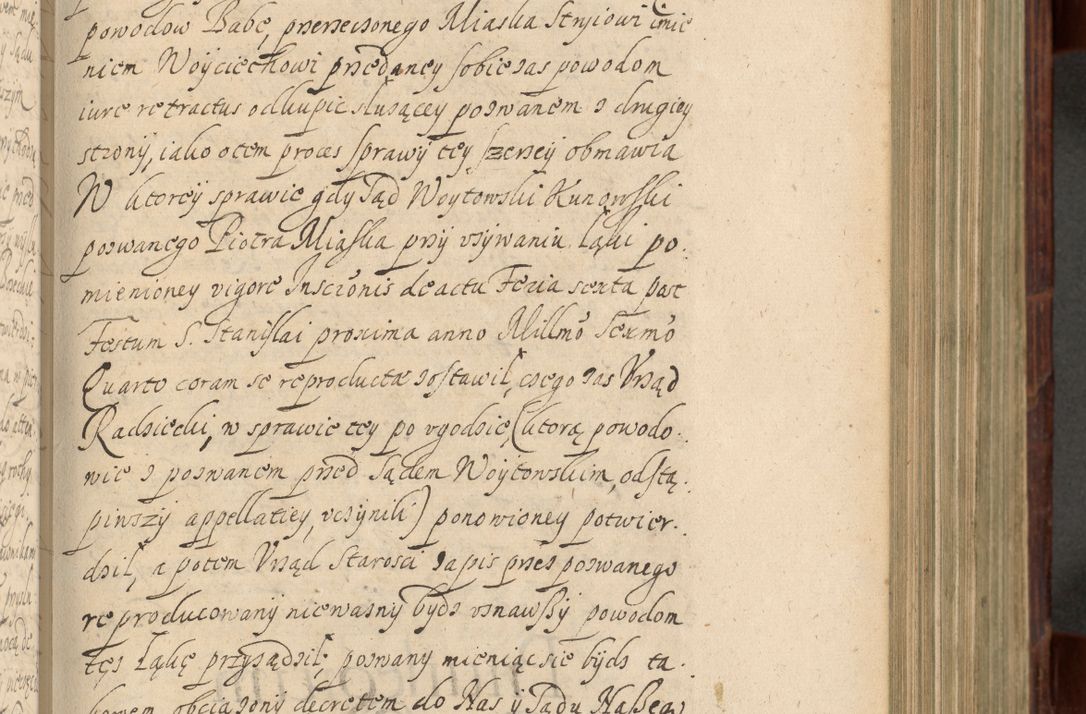 powodow Babę, przerzeczonego Miaska Stryiowi imie
niem Woyciechowi przedaney sobie zas powodom
iure retractus odkupic słuzącey pozwanem z drugiey
strony, iako o tem proces sprawy tey szerzey obmawia
W ktorey sprawie gdy Sąd Woytowski Kunowski
pozwanego Piotra Miaska przy vzywaniu Łąki po.
mienioney vigore Inscronis de actu Feria sexta post
Festum S. Stanislai proxima anno Millmo Sexmo
Quarto coram se reproductæ zostawił, czego zas Vrząd
Radziecki, w sprawie tey po vgodzie, (ktorą powodo.
wie z pozwanem przed Sądem Woytowskim, odstą.
piwszy appellatiey, vczynili) ponowioney potwier.
dził, a potem Vrząd Starosci zapis przez pozwanego
reproducowany niewazny bydz vznawszy powodom
tęz Łąkę przysądził; pozwany mieniąc sie bydz ta.
kowem obciązony decretem do Nas y Sądu Naszego